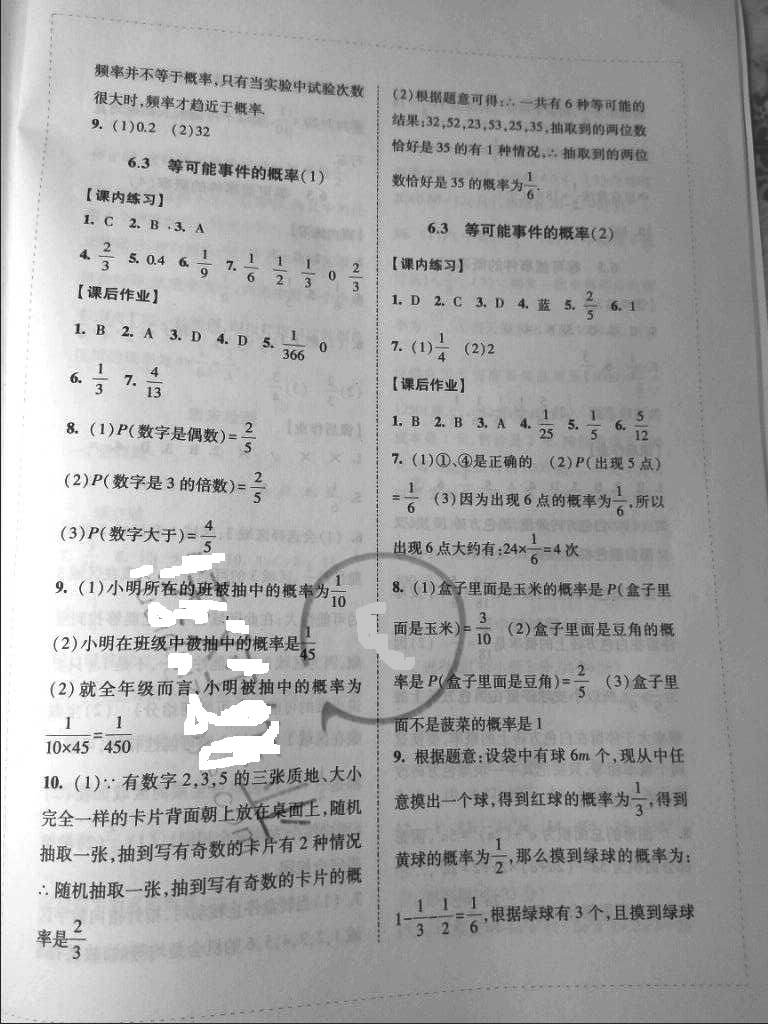 频率并不等于概率,只有当实验中试验次数
很大时,频率才趋近于概率.
9. (1)0.2 (2)32
6.3 等可能事件的概率(1)
【课内练习】
1. C 2. B 3. A
4. 2/3 5. 0.4 6. 1/9 7. 1/6 1/2 1/3 0 2/3
【课后作业】
1. B 2. A 3. D 4. D 5. 1/366 0
6. 1/3 7. 4/13
8. (1)P(数字是偶数)=2/5
(2)P(数字是3的倍数)=2/5
(3)P(数字大于)=4/5
9. (1)小明所在的班被抽中的概率为1/10
(2)小明在班级中被抽中的概率是1/45
(2)就全年级而言,小明被抽中的概率为
1/10×45=1/450
10. (1)∵有数字2,3,5的三张质地、大小
完全一样的卡片背面朝上放在桌面上,随机
抽取一张,抽到写有奇数的卡片有2种情况
∴随机抽取一张,抽到写有奇数的卡片的概
率是2/3
(2)根据题意可得:∴一共有6种等可能的
结果;32,52,23,53,25,35,抽取到的两位数
恰好是35的有1种情况,∴抽取到的两位
数恰好是35的概率为1/6.
6.3 等可能事件的概率(2)
【课内练习】
1. D 2. C 3. D 4. 蓝 5. 2/5 6. 1
7. (1)1/4 (2)2
【课后作业】
1. B 2. B 3. A 4. 1/25 5. 1/5 6. 5/12
7. (1)①、④是正确的 (2)P(出现5点)
=1/6 (3)因为出现6点的概率为1/6,所以
出现6点大约有:24×1/6=4次
8. (1)盒子里面是玉米的概率是P(盒子里
面是玉米)=3/10 (2)盒子里面是豆角的概
率是P(盒子里面是豆角)=2/5 (3)盒子里
面不是菠菜的概率是1
9. 根据题意:设袋中有球6m个,现从中任
意摸出一个球,得到红球的概率为1/3,得到
黄球的概率为1/2,那么摸到绿球的概率为:
1-1/3-1/2=1/6,根据绿球有3个,且摸到绿球